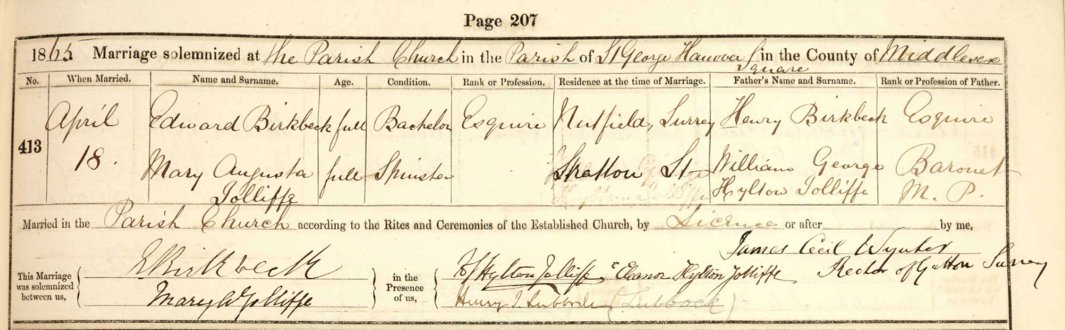 Page 207
1865. Marriage solemnized at the Parish Church in the Parish of St George Hanover Square in the County of Middlesex
No. When Married. Name and Surname. Age. Condition. Rank or Profession. Residence at the time of Marriage. Father's Name and Surname. Rank or Profession of Father.
413 April 18. Edward Birkbeck full Bachelor Esquire Nutfield, Surrey Henry Birkbeck Esquire
Mary Augusta Jolliffe full Spinster Stratton St William George Hylton Jolliffe Baronet M. P.
Married in the Parish Church according to the Rites and Ceremonies of the Established Church, by Licence or after by me,
James Cecil Wynter
Rector of Gatton Surrey
This Marriage was solemnized between us,
E Birkbeck
Mary A Jolliffe
in the Presence of us,
Hylton Jolliffe Eleanor Hylton Jolliffe
Henry J Lubbock (Lubbock)